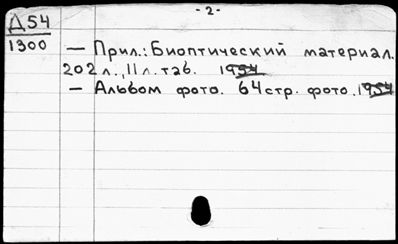 - 2 -
Д54
1300
— Прил.: Биоптический материал.
202 л., 11 л. таб. 1954
— Альбом фото. 64 стр. фото. 1954